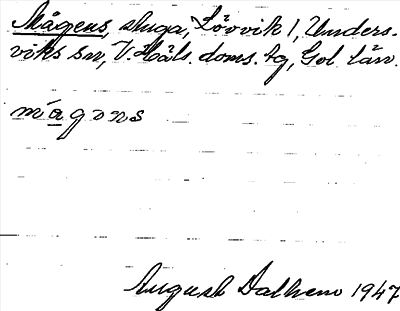 Mågens, stuga, Lövvik 1, Unders-
viks sn, V. Häls. doms. tg, Gvl. län.
mågons
August Dalhem 1947